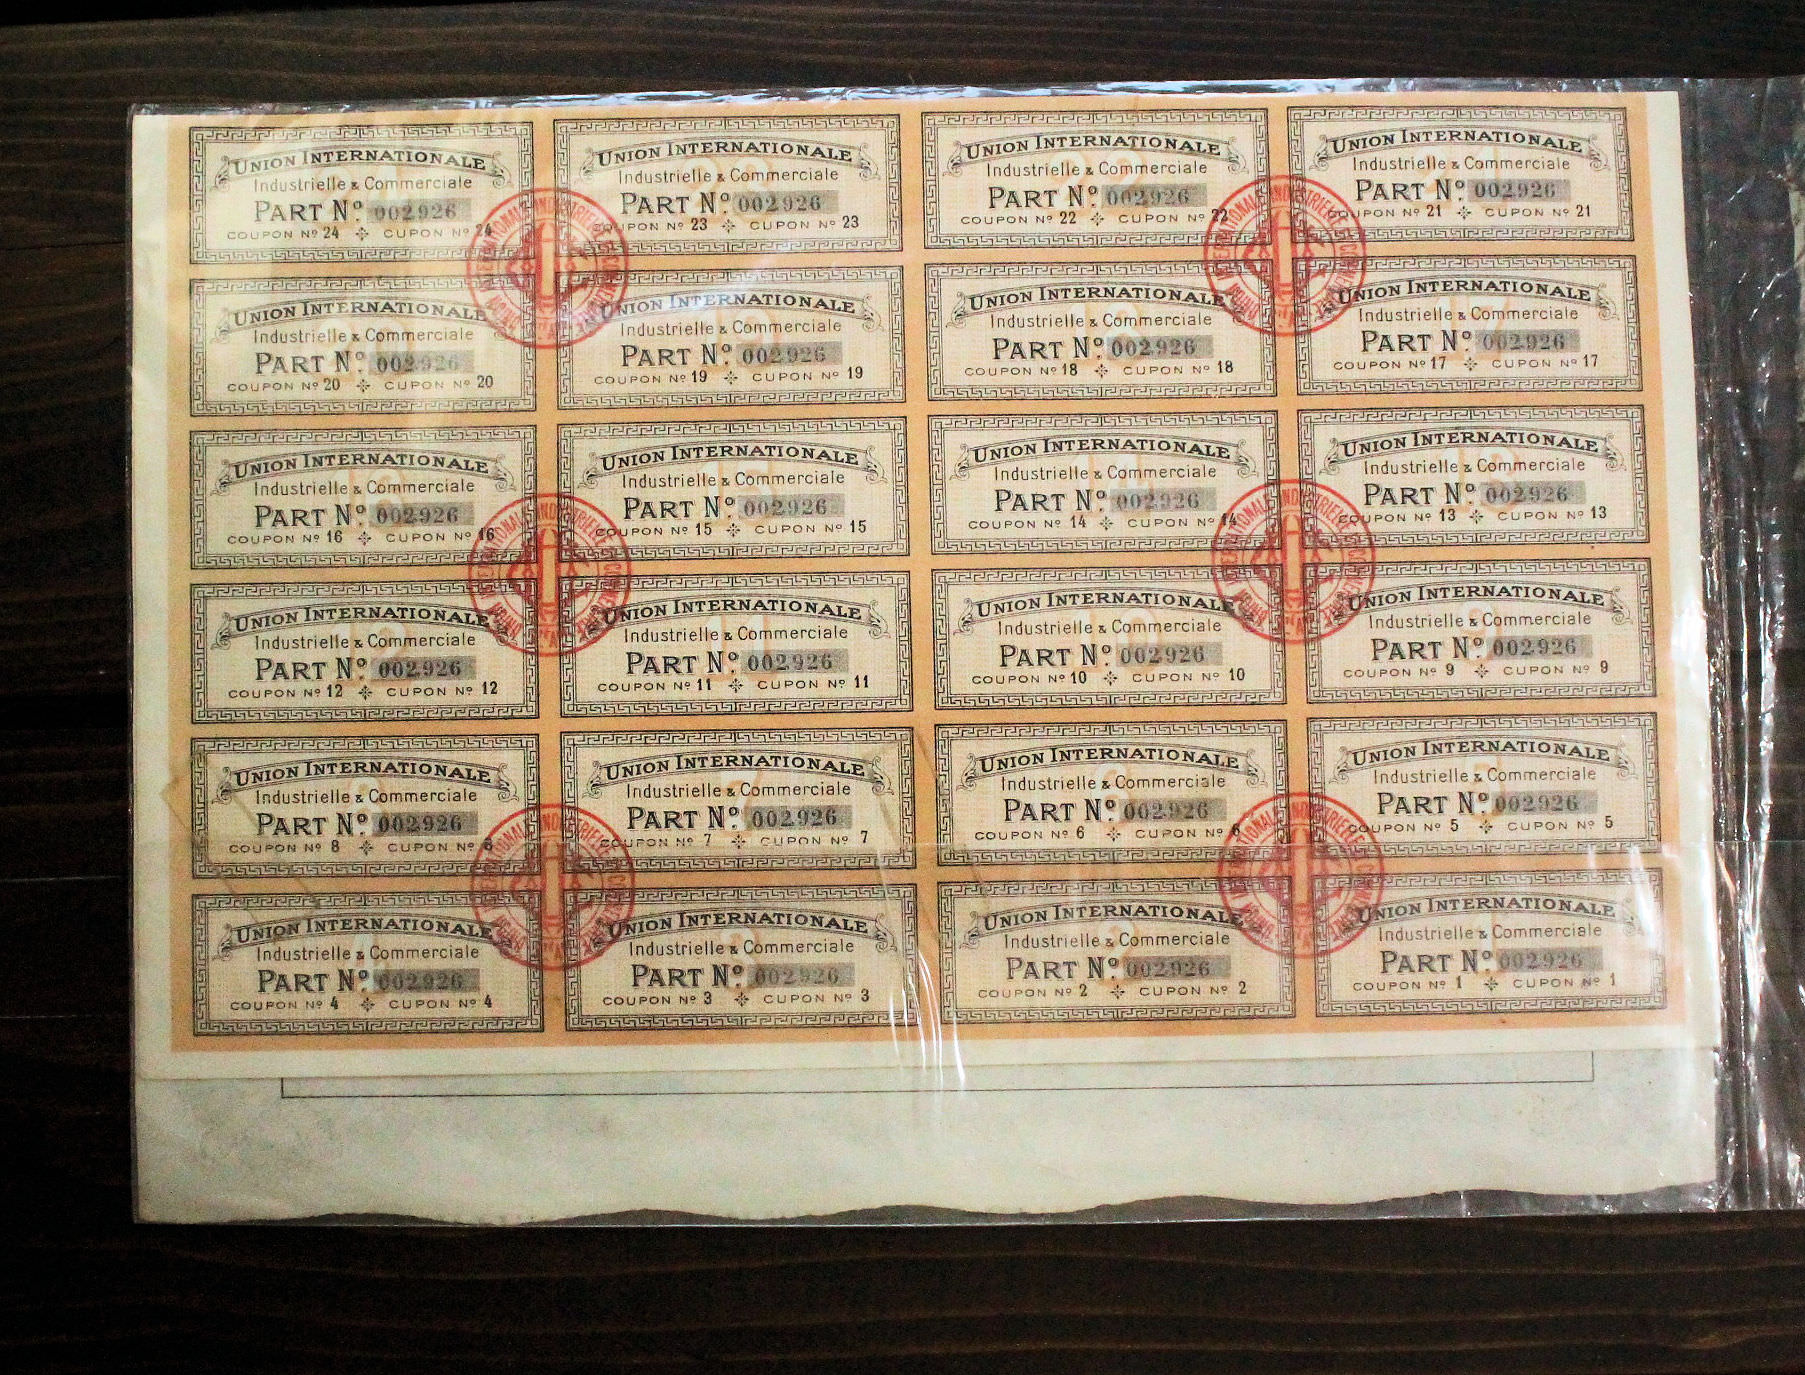 UNION INTERNATIONALE
Industrielle & Commerciale
PART Nº. 002926
COUPON Nº 24 CUPON Nº 24
UNION INTERNATIONALE
Industrielle & Commerciale
PART Nº. 002926
COUPON Nº 23 CUPON Nº 23
UNION INTERNATIONALE
Industrielle & Commerciale
PART Nº. 002926
COUPON Nº 22 CUPON Nº 22
UNION INTERNATIONALE
Industrielle & Commerciale
PART Nº. 002926
COUPON Nº 21 CUPON Nº 21
UNION INTERNATIONALE
Industrielle & Commerciale
PART Nº. 002926
COUPON Nº 20 CUPON Nº 20
UNION INTERNATIONALE
Industrielle & Commerciale
PART Nº. 002926
COUPON Nº 19 CUPON Nº 19
UNION INTERNATIONALE
Industrielle & Commerciale
PART Nº. 002926
COUPON Nº 18 CUPON Nº 18
UNION INTERNATIONALE
Industrielle & Commerciale
PART Nº. 002926
COUPON Nº 17 CUPON Nº 17
UNION INTERNATIONALE
Industrielle & Commerciale
PART Nº. 002926
COUPON Nº 16 CUPON Nº 16
UNION INTERNATIONALE
Industrielle & Commerciale
PART Nº. 002926
COUPON Nº 15 CUPON Nº 15
UNION INTERNATIONALE
Industrielle & Commerciale
PART Nº. 002926
COUPON Nº 14 CUPON Nº 14
UNION INTERNATIONALE
Industrielle & Commerciale
PART Nº. 002926
COUPON Nº 13 CUPON Nº 13
UNION INTERNATIONALE
Industrielle & Commerciale
PART Nº. 002926
COUPON Nº 12 CUPON Nº 12
UNION INTERNATIONALE
Industrielle & Commerciale
PART Nº. 002926
COUPON Nº 11 CUPON Nº 11
UNION INTERNATIONALE
Industrielle & Commerciale
PART Nº. 002926
COUPON Nº 10 CUPON Nº 10
UNION INTERNATIONALE
Industrielle & Commerciale
PART Nº. 002926
COUPON Nº 9 CUPON Nº 9
UNION INTERNATIONALE
Industrielle & Commerciale
PART Nº. 002926
COUPON Nº 8 CUPON Nº 8
UNION INTERNATIONALE
Industrielle & Commerciale
PART Nº. 002926
COUPON Nº 7 CUPON Nº 7
UNION INTERNATIONALE
Industrielle & Commerciale
PART Nº. 002926
COUPON Nº 6 CUPON Nº 6
UNION INTERNATIONALE
Industrielle & Commerciale
PART Nº. 002926
COUPON Nº 5 CUPON Nº 5
UNION INTERNATIONALE
Industrielle & Commerciale
PART Nº. 002926
COUPON Nº 4 CUPON Nº 4
UNION INTERNATIONALE
Industrielle & Commerciale
PART Nº. 002926
COUPON Nº 3 CUPON Nº 3
UNION INTERNATIONALE
Industrielle & Commerciale
PART Nº. 002926
COUPON Nº 2 CUPON Nº 2
UNION INTERNATIONALE
Industrielle & Commerciale
PART Nº. 002926
COUPON Nº 1 CUPON Nº 1